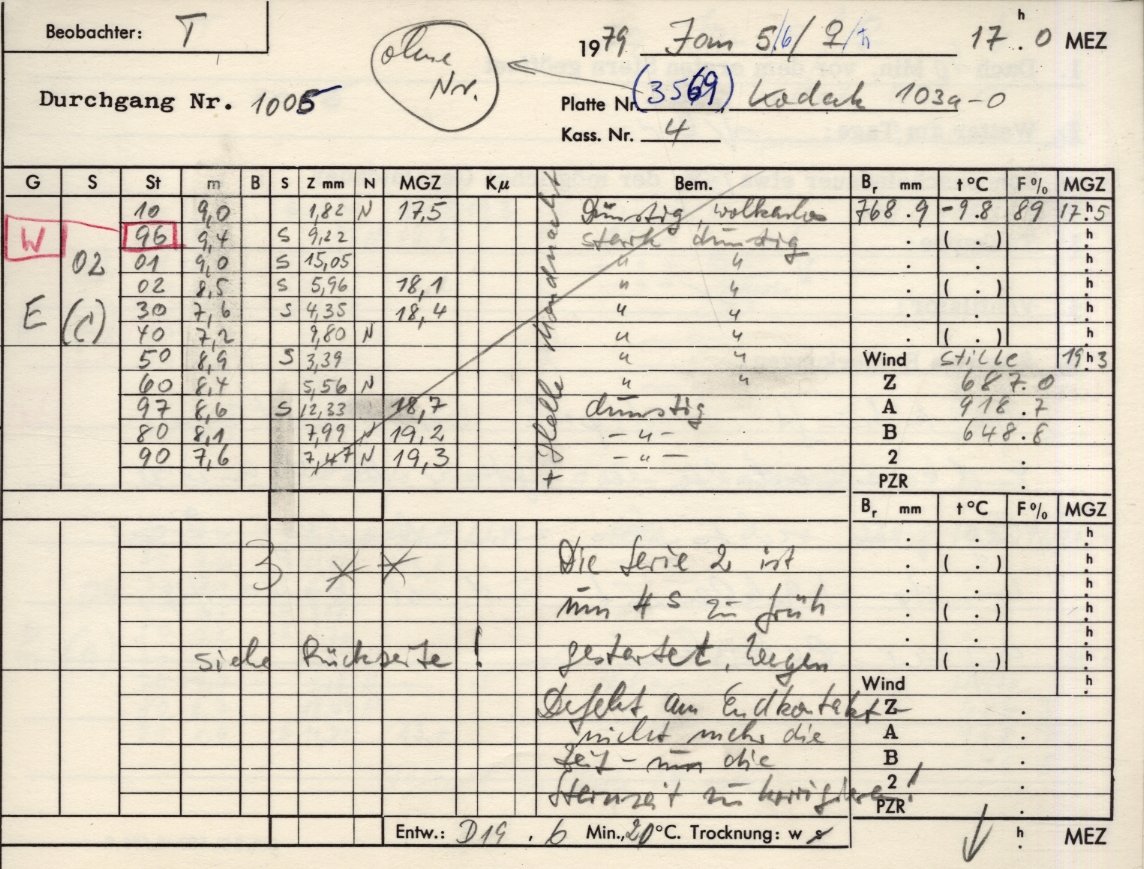 Beobachter: T
ohne Nr.
1979 Jan 5/6/ 17.h0 MEZ
Durchgang Nr. 1005
Platte Nr. (3569) Kodak 103a-O
Kass. Nr. 4
G S St m B S Z mm N MGZ Kμ Bem. Br mm t°C F% MGZ
10 9,0 1,82 N 17,5 Dunstig, wolkenlos 768.9 -9.8 89 17h5
W 96 9,4 S 9,22 stark dunstig . ( . ) h.
02 01 9,0 S 15,05 " " . . h.
02 8,5 S 5,96 18,1 " " . ( . ) h.
E (C) 30 7,6 S 4,35 18,4 " " . . h.
40 7,2 9,80 N " " . ( . ) h.
50 8,9 S 3,39 " " Wind stille 19h3
60 8,4 5,56 N " " Z 687.0
97 8,6 S 12,33 18,7 dunstig A 918.7
80 8,1 7,99 N 19,2 - " - B 648.8
90 7,6 7,47 N 19,3 - " - 2 .
PZR .
+ Helle Mondnacht
Br mm t°C F% MGZ
3 **
Die Serie 2 ist . ( . ) h.
um 4 S zu früh . ( . ) h.
siehe Rückseite! gestartet, wegen . ( . ) h.
Wind h.
Defekt am Endkontakt Z .
nicht mehr die A .
Zeit - um die B .
Sternzeit zu korrigieren! 2 .
PZR .
Entw.: D19 . 6 Min., 20°C. Trocknung: w s h. MEZ